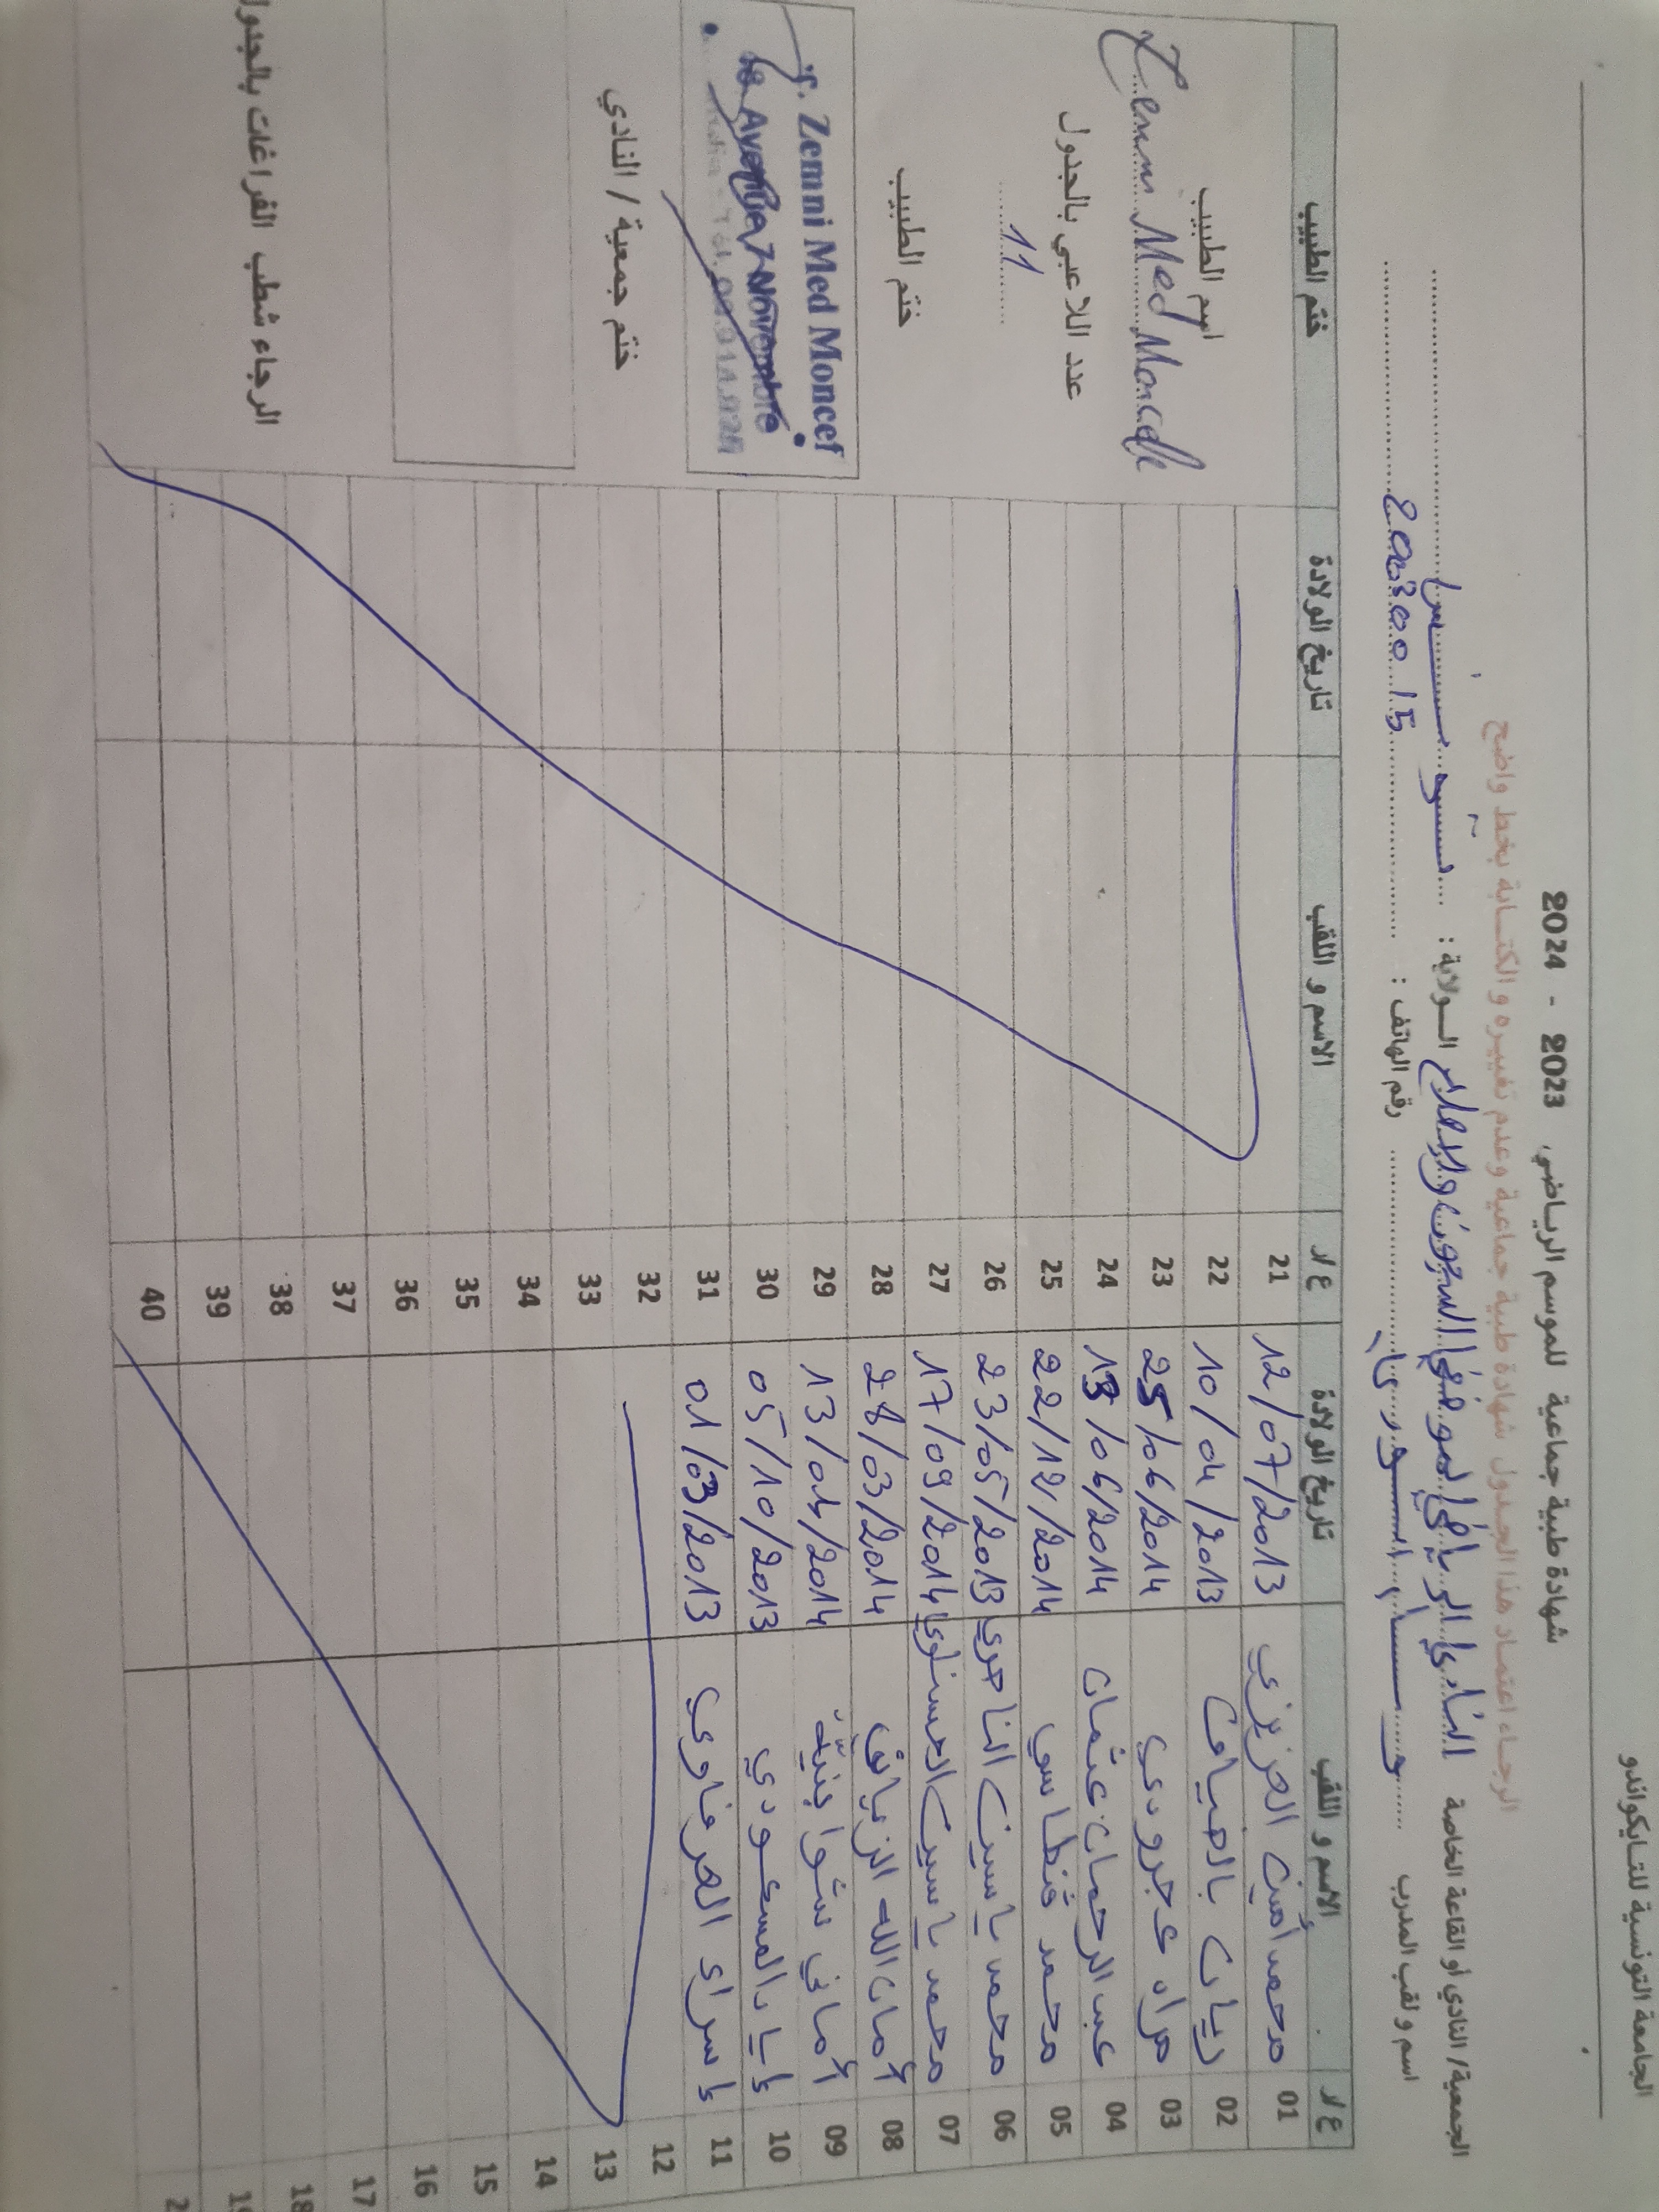 الجامعة التونسية للتايكواندو
شهادة طبية جماعية للموسم الرياضي 2023 - 2024
الرجاء اعتماد هذا الجدول شهادة طبية جماعية وعدم تغييره و الكتابة بخط واضح
الجمعية/ النادي أو القاعة الخاصة النادي الرياضي لموظفي السجون والإصلاح الولاية :
اسم و لقب المدرب رقم الهاتف :
ع/د الاسم و اللقب تاريخ الولادة ع/د الاسم و اللقب تاريخ الولادة ختم الطبيب
01 محمد أمين العزيزي 12/07/2013 21
02 ريان بالضياف 10/04/2013 22
03 مراد عجرودي 25/06/2014 23
04 عبد الرحمان عثمان 13/06/2014 24
05 محمد قنطاسي 22/12/2014 25
06 محمد ياسين الناجري 23/05/2013 26
07 محمد ياسين 17/09/2014 27
08 أمان الله الزياني 28/03/2014 28
09 أماني شوابنية 13/04/2014 29
10 إياد المسعودي 05/10/2013 30
11 إسراء العرفاوي 01/03/2013 31
12 32
13 33
14 34
15 35
16 36
17 37
18 38
19 39
2 40
اسم الطبيب
Zemni Med Moncef
عدد اللاعبي بالجدول
11
ختم الطبيب
Zemni Med Moncef
Avenue 7 Novembre
ختم جمعية / النادي
الرجاء شطب الفراغات بالجدول